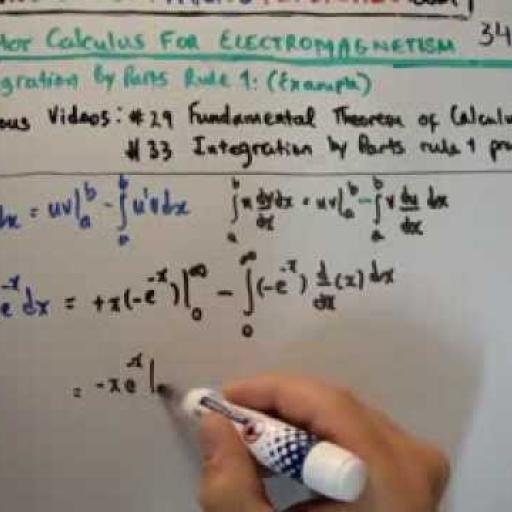 tor Calculus For ELECTROMAGNETISM 34
gration by Parts Rule 1: (Example)
ous Videos: #29 Fundamental Theorem of Calculu
#33 Integration by Parts rule 1 pro
dx = uv|_a^b - ∫_a^b u'v dx ∫_a^b u dv/dx dx = uv|_a^b - ∫_a^b v du/dx dx
e^-x dx = +x(-e^-x)|_0^∞ - ∫_0^∞ (-e^-x) d/dx (x) dx
= -xe^-x|